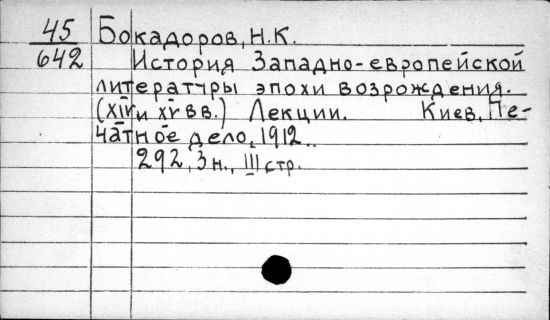 45 Бокадоров, Н.К.
642 История Западно-европейской
литературы эпохи возрождения.
(XIV и XV вв.) Лекции. Киев, Пе-
чатное дело, 1912.
292, 3 н., III стр.